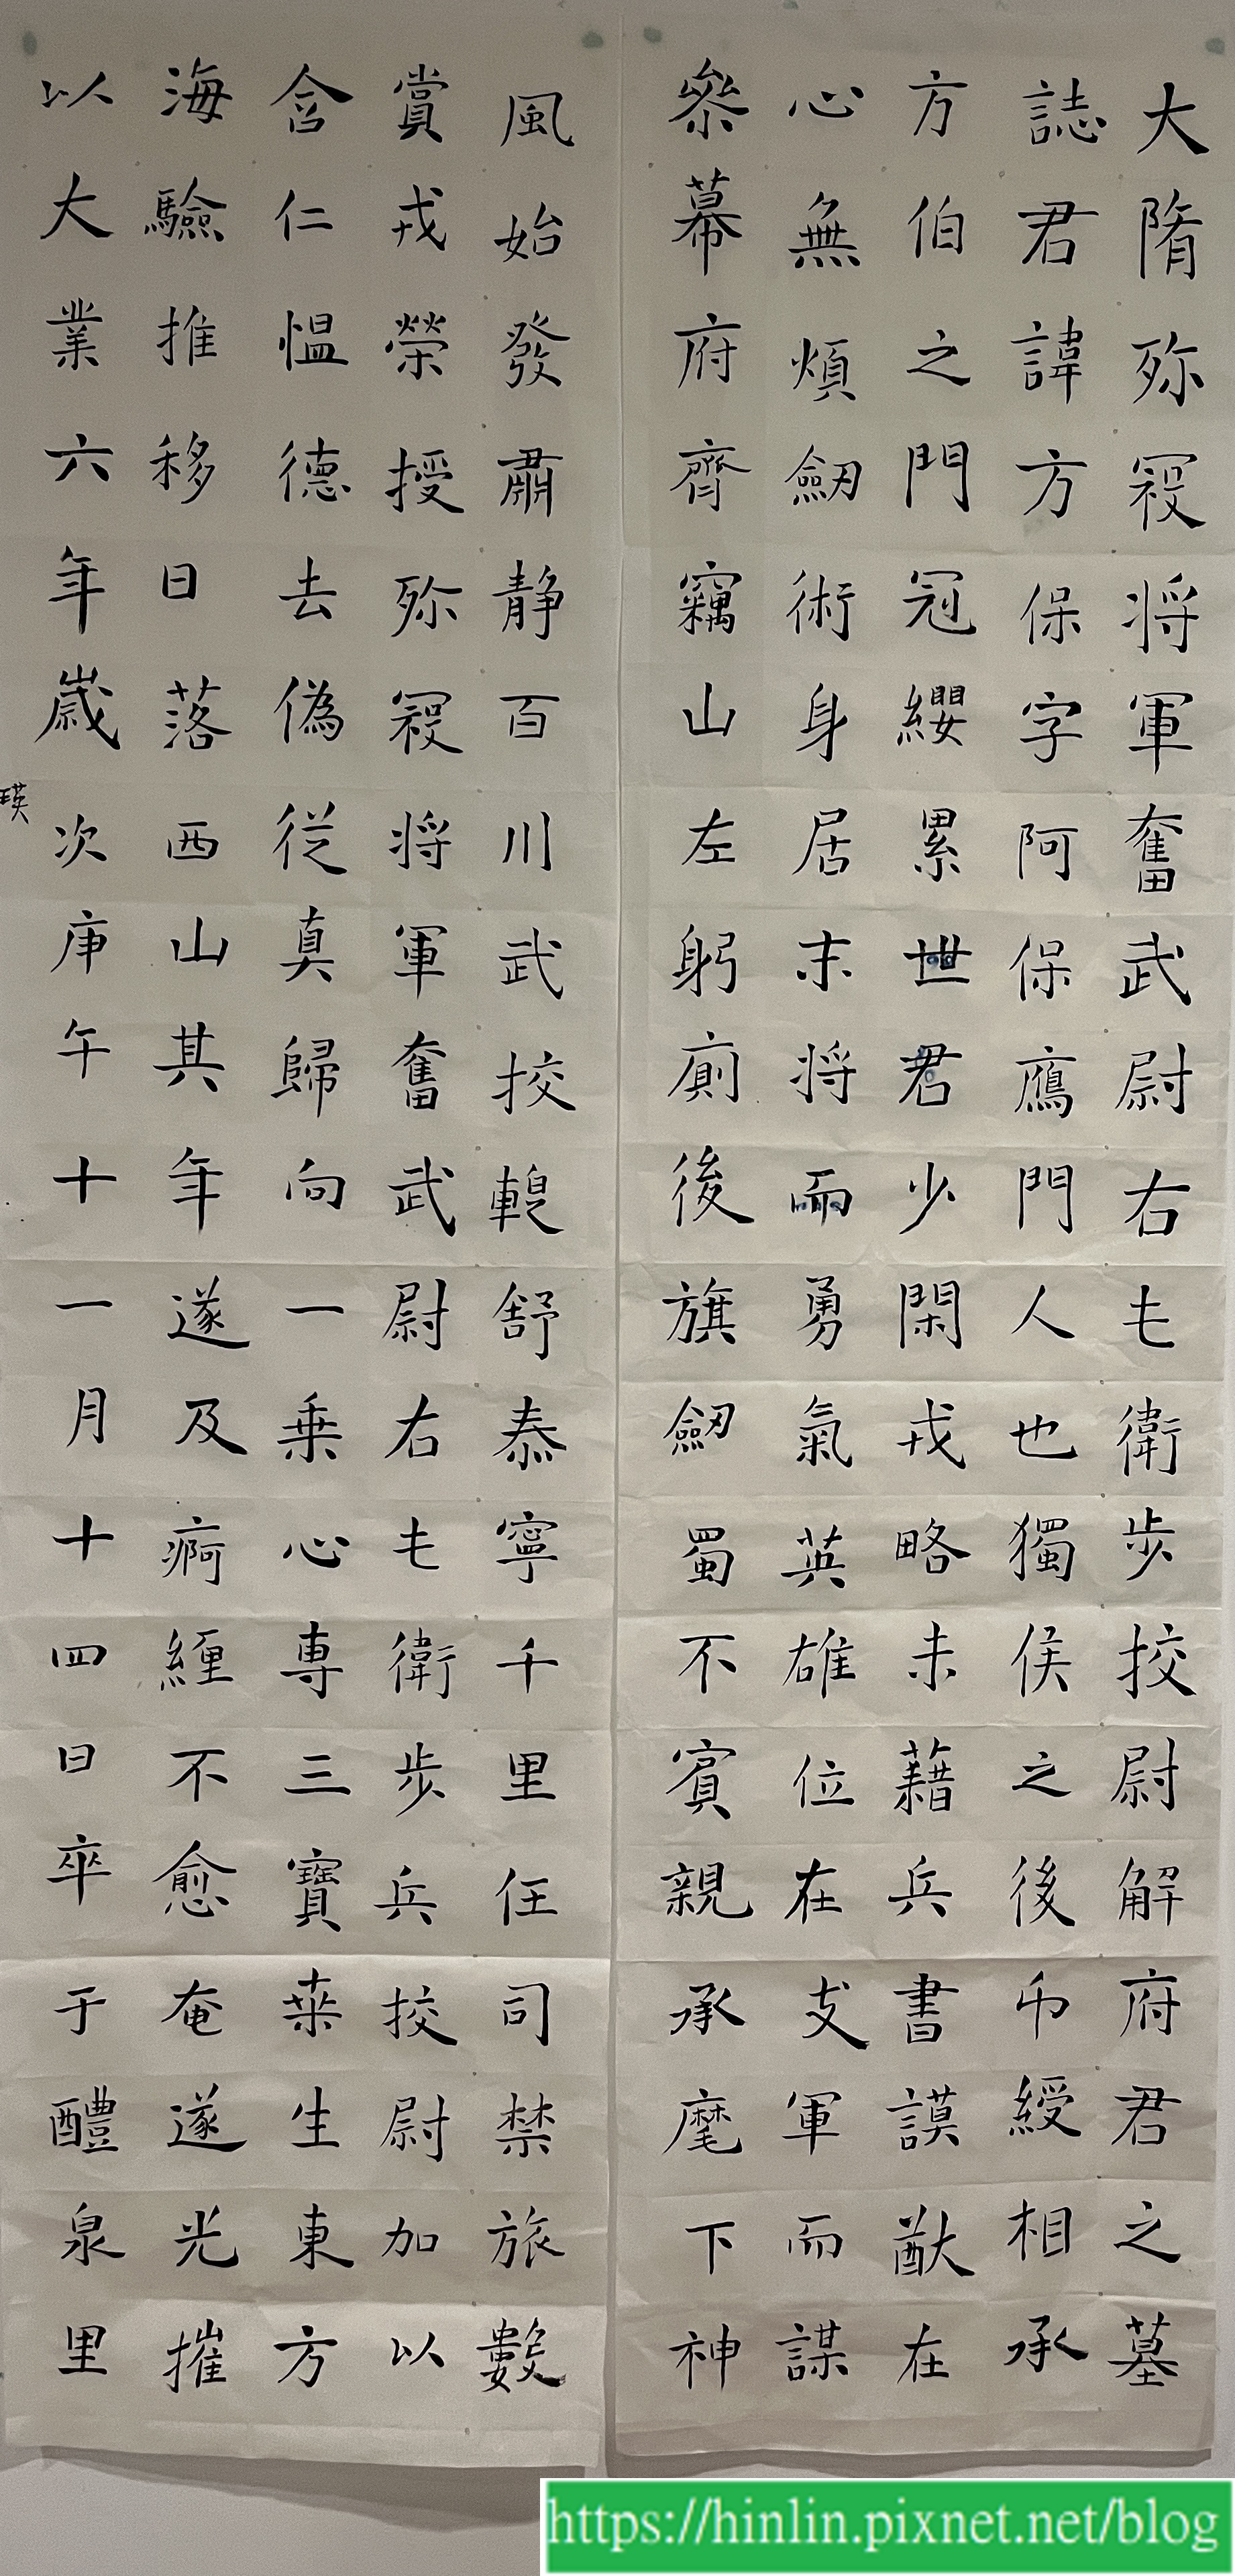 大隋殄寇将軍奮武尉右乇衛步挍尉解府君之墓
誌君諱方保字阿保鴈門人也獨侯之後印綬相承
方伯之門冠纓累世君少閑戎略未藉兵書謨猷在
心無煩劒術身居末将而勇氣英雄位在支軍而謀
叅幕府齊竊山左躬廁後旗劒蜀不賓親承麾下神
風始發肅静百川武挍輕舒泰寧千里任司禁旅數
賞戎榮授殄寇将軍奮武尉右乇衛步兵挍尉加以
含仁愠德去偽從真歸向一乗心專三寶菜生東方
海驗推移日落西山其年遂及痾纏不愈奄遂光摧
以大業六年歲次庚午十一月十四日卒于醴泉里
瑛
https://hinlin.pixnet.net/blog